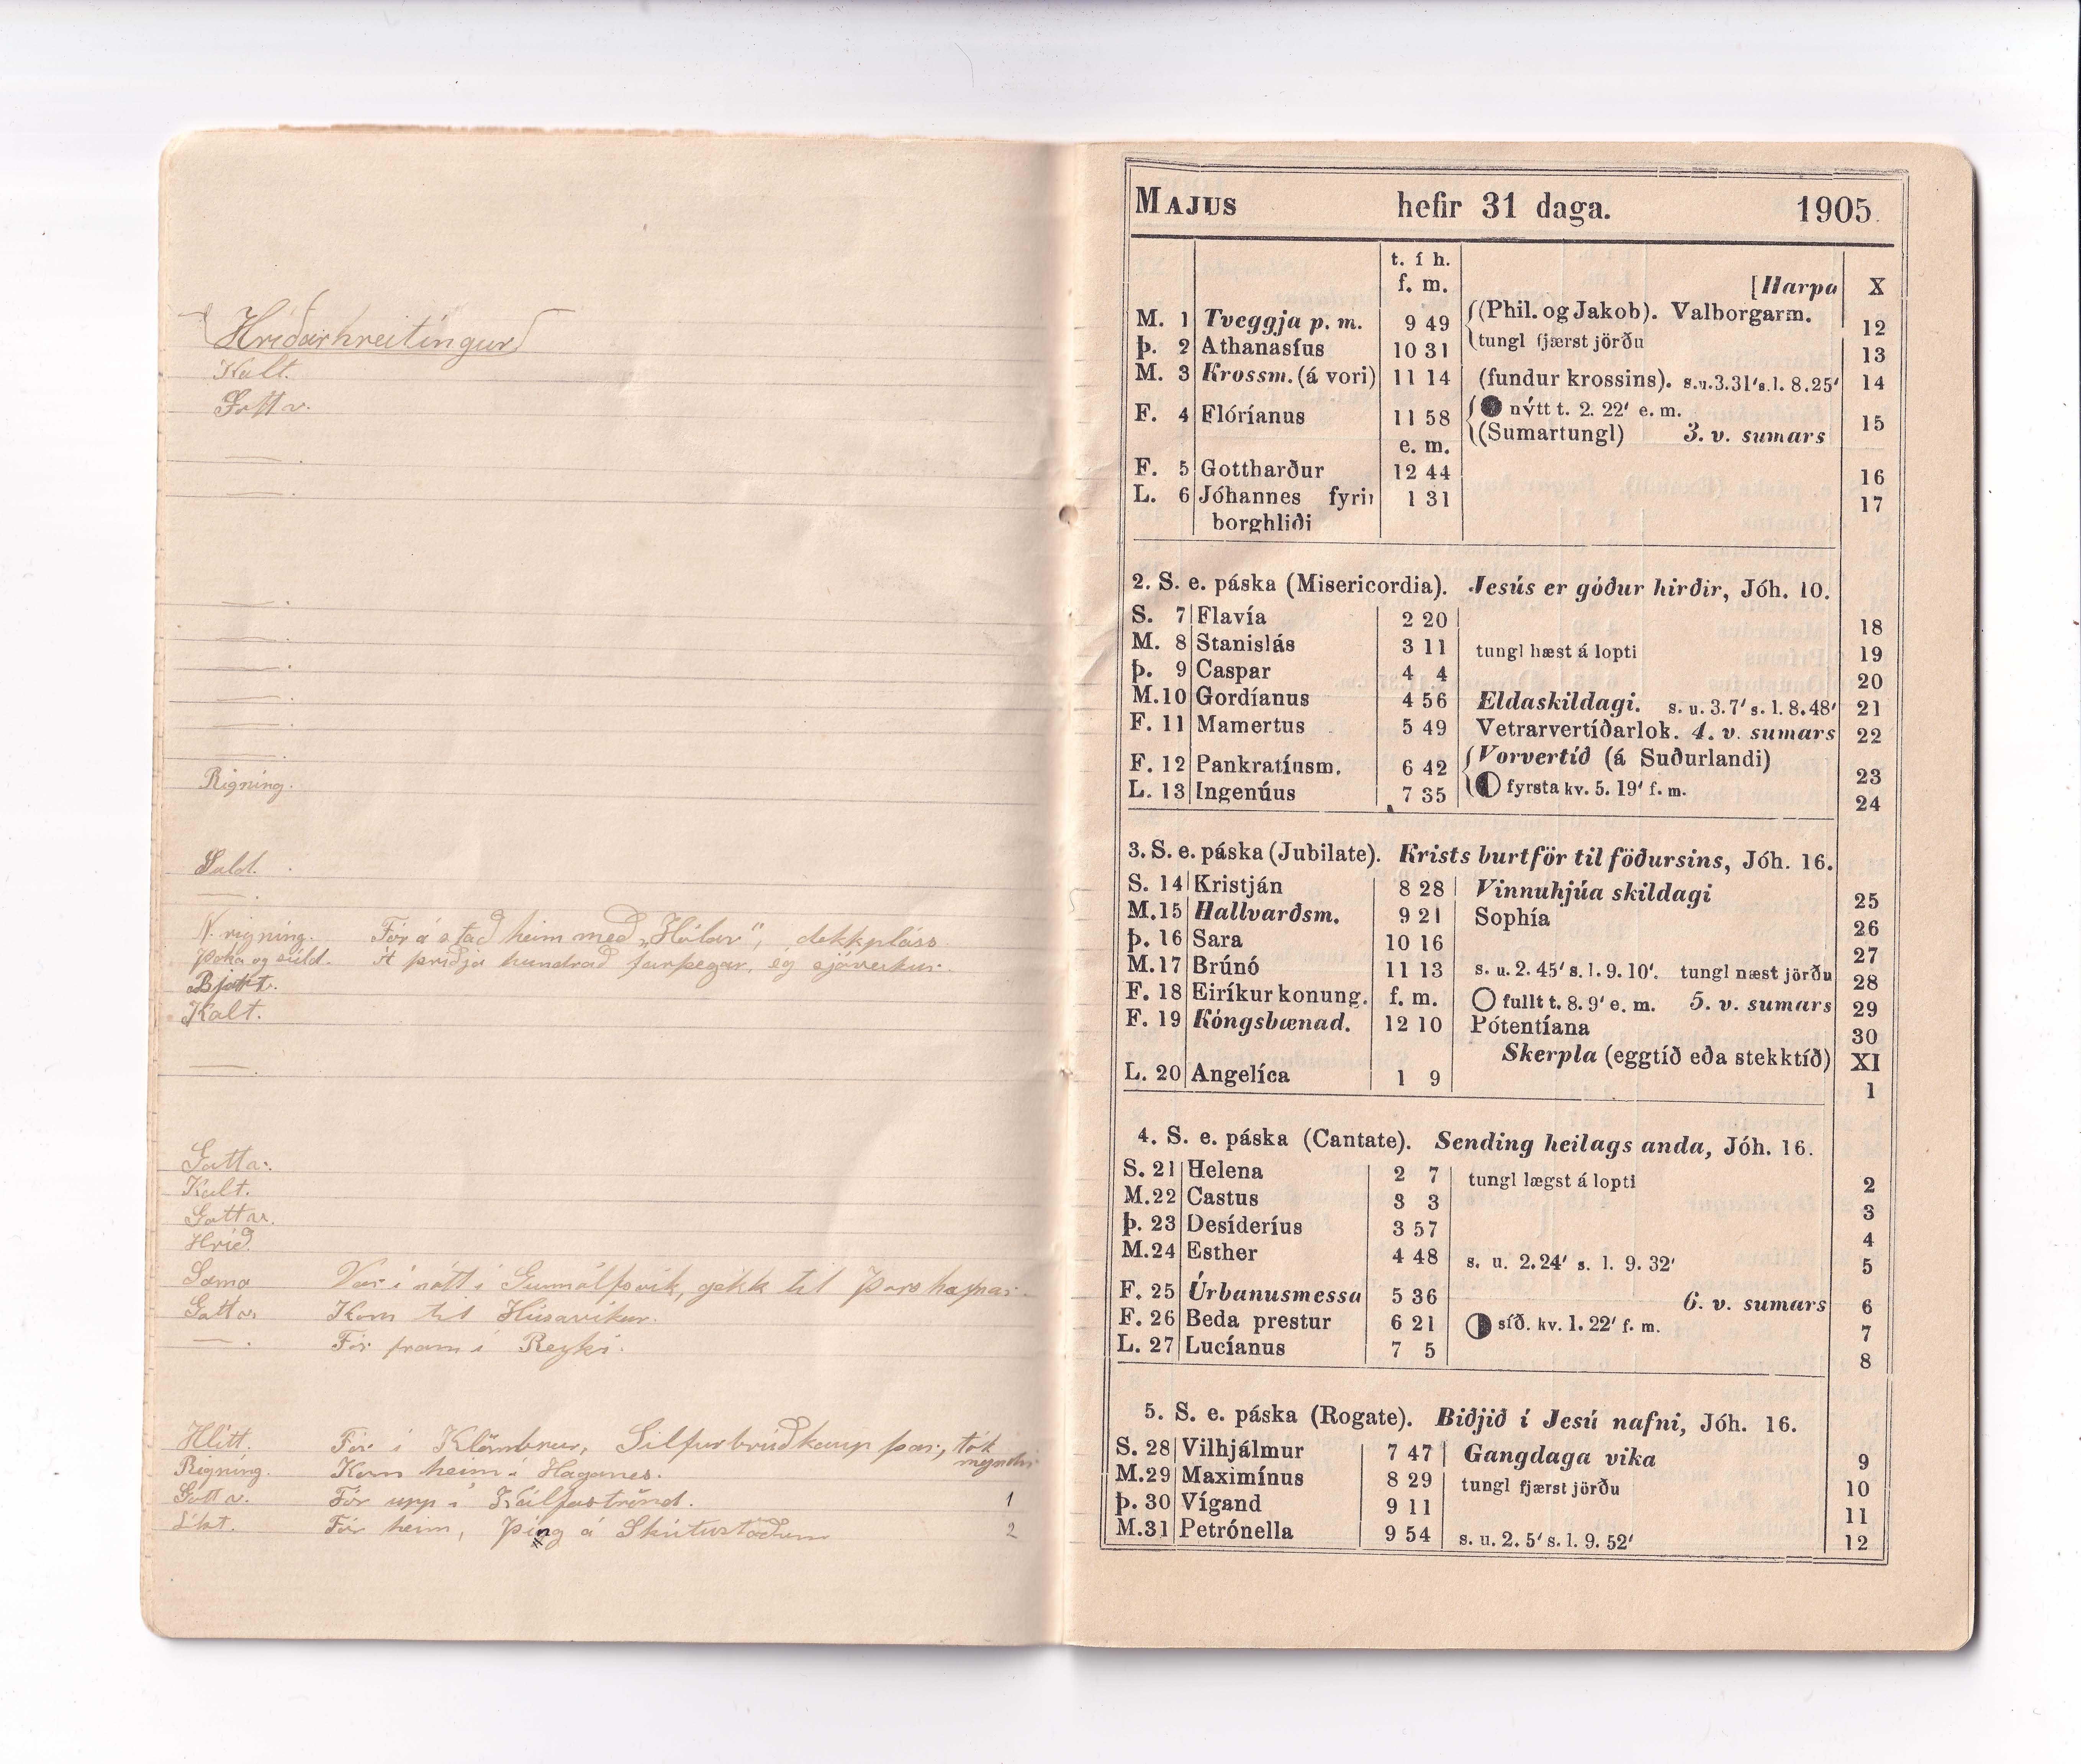 Hríðarhreitíngur
Kalt.
Gott v.
— .
— .
— .
— .
— .
— .
— .
— .
Rigning.
Suld.
— .
N. rigning. Fór á stað heim með „Hólar“, dekkpláss
Þoka og súld. Á þriðja hundrað farþegar, ég sjóveikur.
Bjart.
Kalt.
— .
Gott v.
Kalt.
Gott v.
Hríð.
Sama Var í nótt í Gunnólfsvík, gekk til Þórshafnar.
Gott v. Kom til Húsavíkur.
— . Fór fram í Reyki.
Hlítt. Fór í Klömbrur, Silfurbrúðkaup þar, tók myndir
Rigning. Kom heim í Haganes.
Gott v. Fór upp í Kálfaströnd. 1
Líkt. Fór heim, Þing á Skútustöðum 2
MAJUS hefir 31 daga. 1905.
t. í h.
f. m. [Harpa X
M. 1 Tveggja p. m. 9 49 (Phil. og Jakob). Valborgarm. 12
Þ. 2 Athanasíus 10 31 tungl fjærst jörðu 13
M. 3 Krossm. (á vori) 11 14 (fundur krossins). s.u.3.31' s.l. 8.25' 14
F. 4 Flóríanus 11 58 nýtt t. 2. 22' e. m. 15
e. m. (Sumartungl) 3. v. sumars
F. 5 Gottharður 12 44 16
L. 6 Jóhannes fyrir 1 31 17
borghliði
2. S. e. páska (Misericordia). Jesús er góður hirðir, Jóh. 10.
S. 7 Flavía 2 20 18
M. 8 Stanislás 3 11 tungl hæst á lopti 19
Þ. 9 Caspar 4 4 20
M. 10 Gordíanus 4 56 Eldaskildagi. s. u. 3.7' s. l. 8.48' 21
F. 11 Mamertus 5 49 Vetrarvertíðarlok. 4. v. sumars 22
F. 12 Pankratíusm. 6 42 Vorvertíð (á Suðurlandi) 23
L. 13 Ingenúus 7 35 fyrsta kv. 5. 19' f. m. 24
3. S. e. páska (Jubilate). Krists burtför til föðursins, Jóh. 16.
S. 14 Kristján 8 28 Vinnuhjúa skildagi 25
M. 15 Hallvarðsm. 9 21 Sophía 26
Þ. 16 Sara 10 16 27
M. 17 Brúnó 11 13 s. u. 2. 45' s. l. 9. 10'. tungl næst jörðu 28
F. 18 Eiríkur konung. f. m. fullt t. 8. 9' e. m. 5. v. sumars 29
F. 19 Kóngsbænad. 12 10 Pótentíana 30
Skerpla (eggtíð eða stekktíð) XI
L. 20 Angelíca 1 9 1
4. S. e. páska (Cantate). Sending heilags anda, Jóh. 16.
S. 21 Helena 2 7 tungl lægst á lopti 2
M. 22 Castus 3 3 3
Þ. 23 Desíderíus 3 57 4
M. 24 Esther 4 48 s. u. 2.24' s. l. 9. 32' 5
F. 25 Úrbanusmessa 5 36 6. v. sumars 6
F. 26 Beda prestur 6 21 síð. kv. 1. 22' f. m. 7
L. 27 Lucíanus 7 5 8
5. S. e. páska (Rogate). Biðjið í Jesú nafni, Jóh. 16.
S. 28 Vilhjálmur 7 47 Gangdaga vika 9
M. 29 Maximínus 8 29 tungl fjærst jörðu 10
Þ. 30 Vígand 9 11 11
M. 31 Petrónella 9 54 s. u. 2. 5' s. l. 9. 52' 12